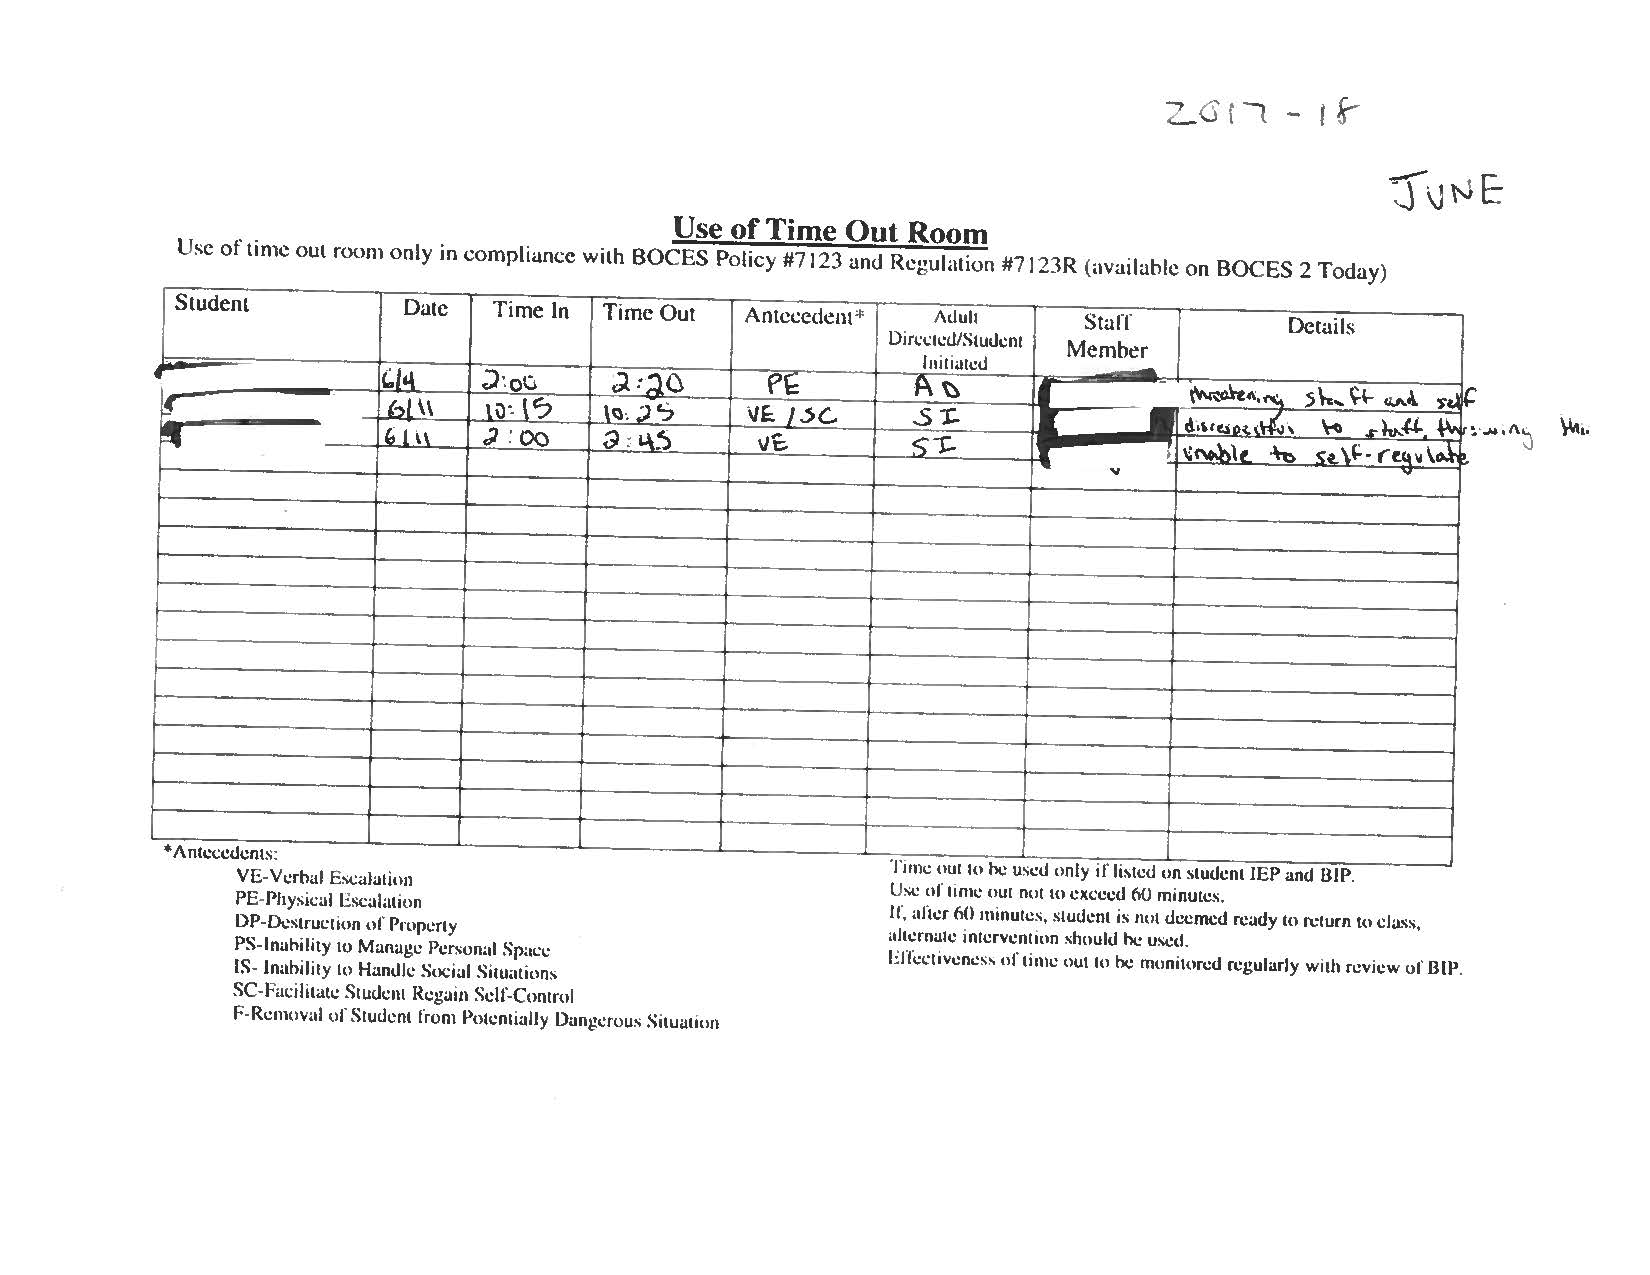 2017-18
JUNE
Use of Time Out Room
Use of time out room only in compliance with BOCES Policy #7123 and Regulation #7123R (available on BOCES 2 Today)
Student Date Time In Time Out Antecedent* Adult Directed/Student Initiated Staff Member Details
6/4 2:00 2:20 PE AD threatening staff and self
6/11 10:15 10:25 VE/SC SI disrespectful to staff, throwing
6/11 2:00 2:45 VE SI unable to self-regulate
*Antecedents:
VE-Verbal Escalation
PE-Physical Escalation
DP-Destruction of Property
PS-Inability to Manage Personal Space
IS- Inability to Handle Social Situations
SC-Facilitate Student Regain Self-Control
F-Removal of Student from Potentially Dangerous Situation
Time out to be used only if listed on student IEP and BIP.
Use of time out not to exceed 60 minutes.
If, after 60 minutes, student is not deemed ready to return to class,
alternate intervention should be used.
Effectiveness of time out to be monitored regularly with review of BIP.